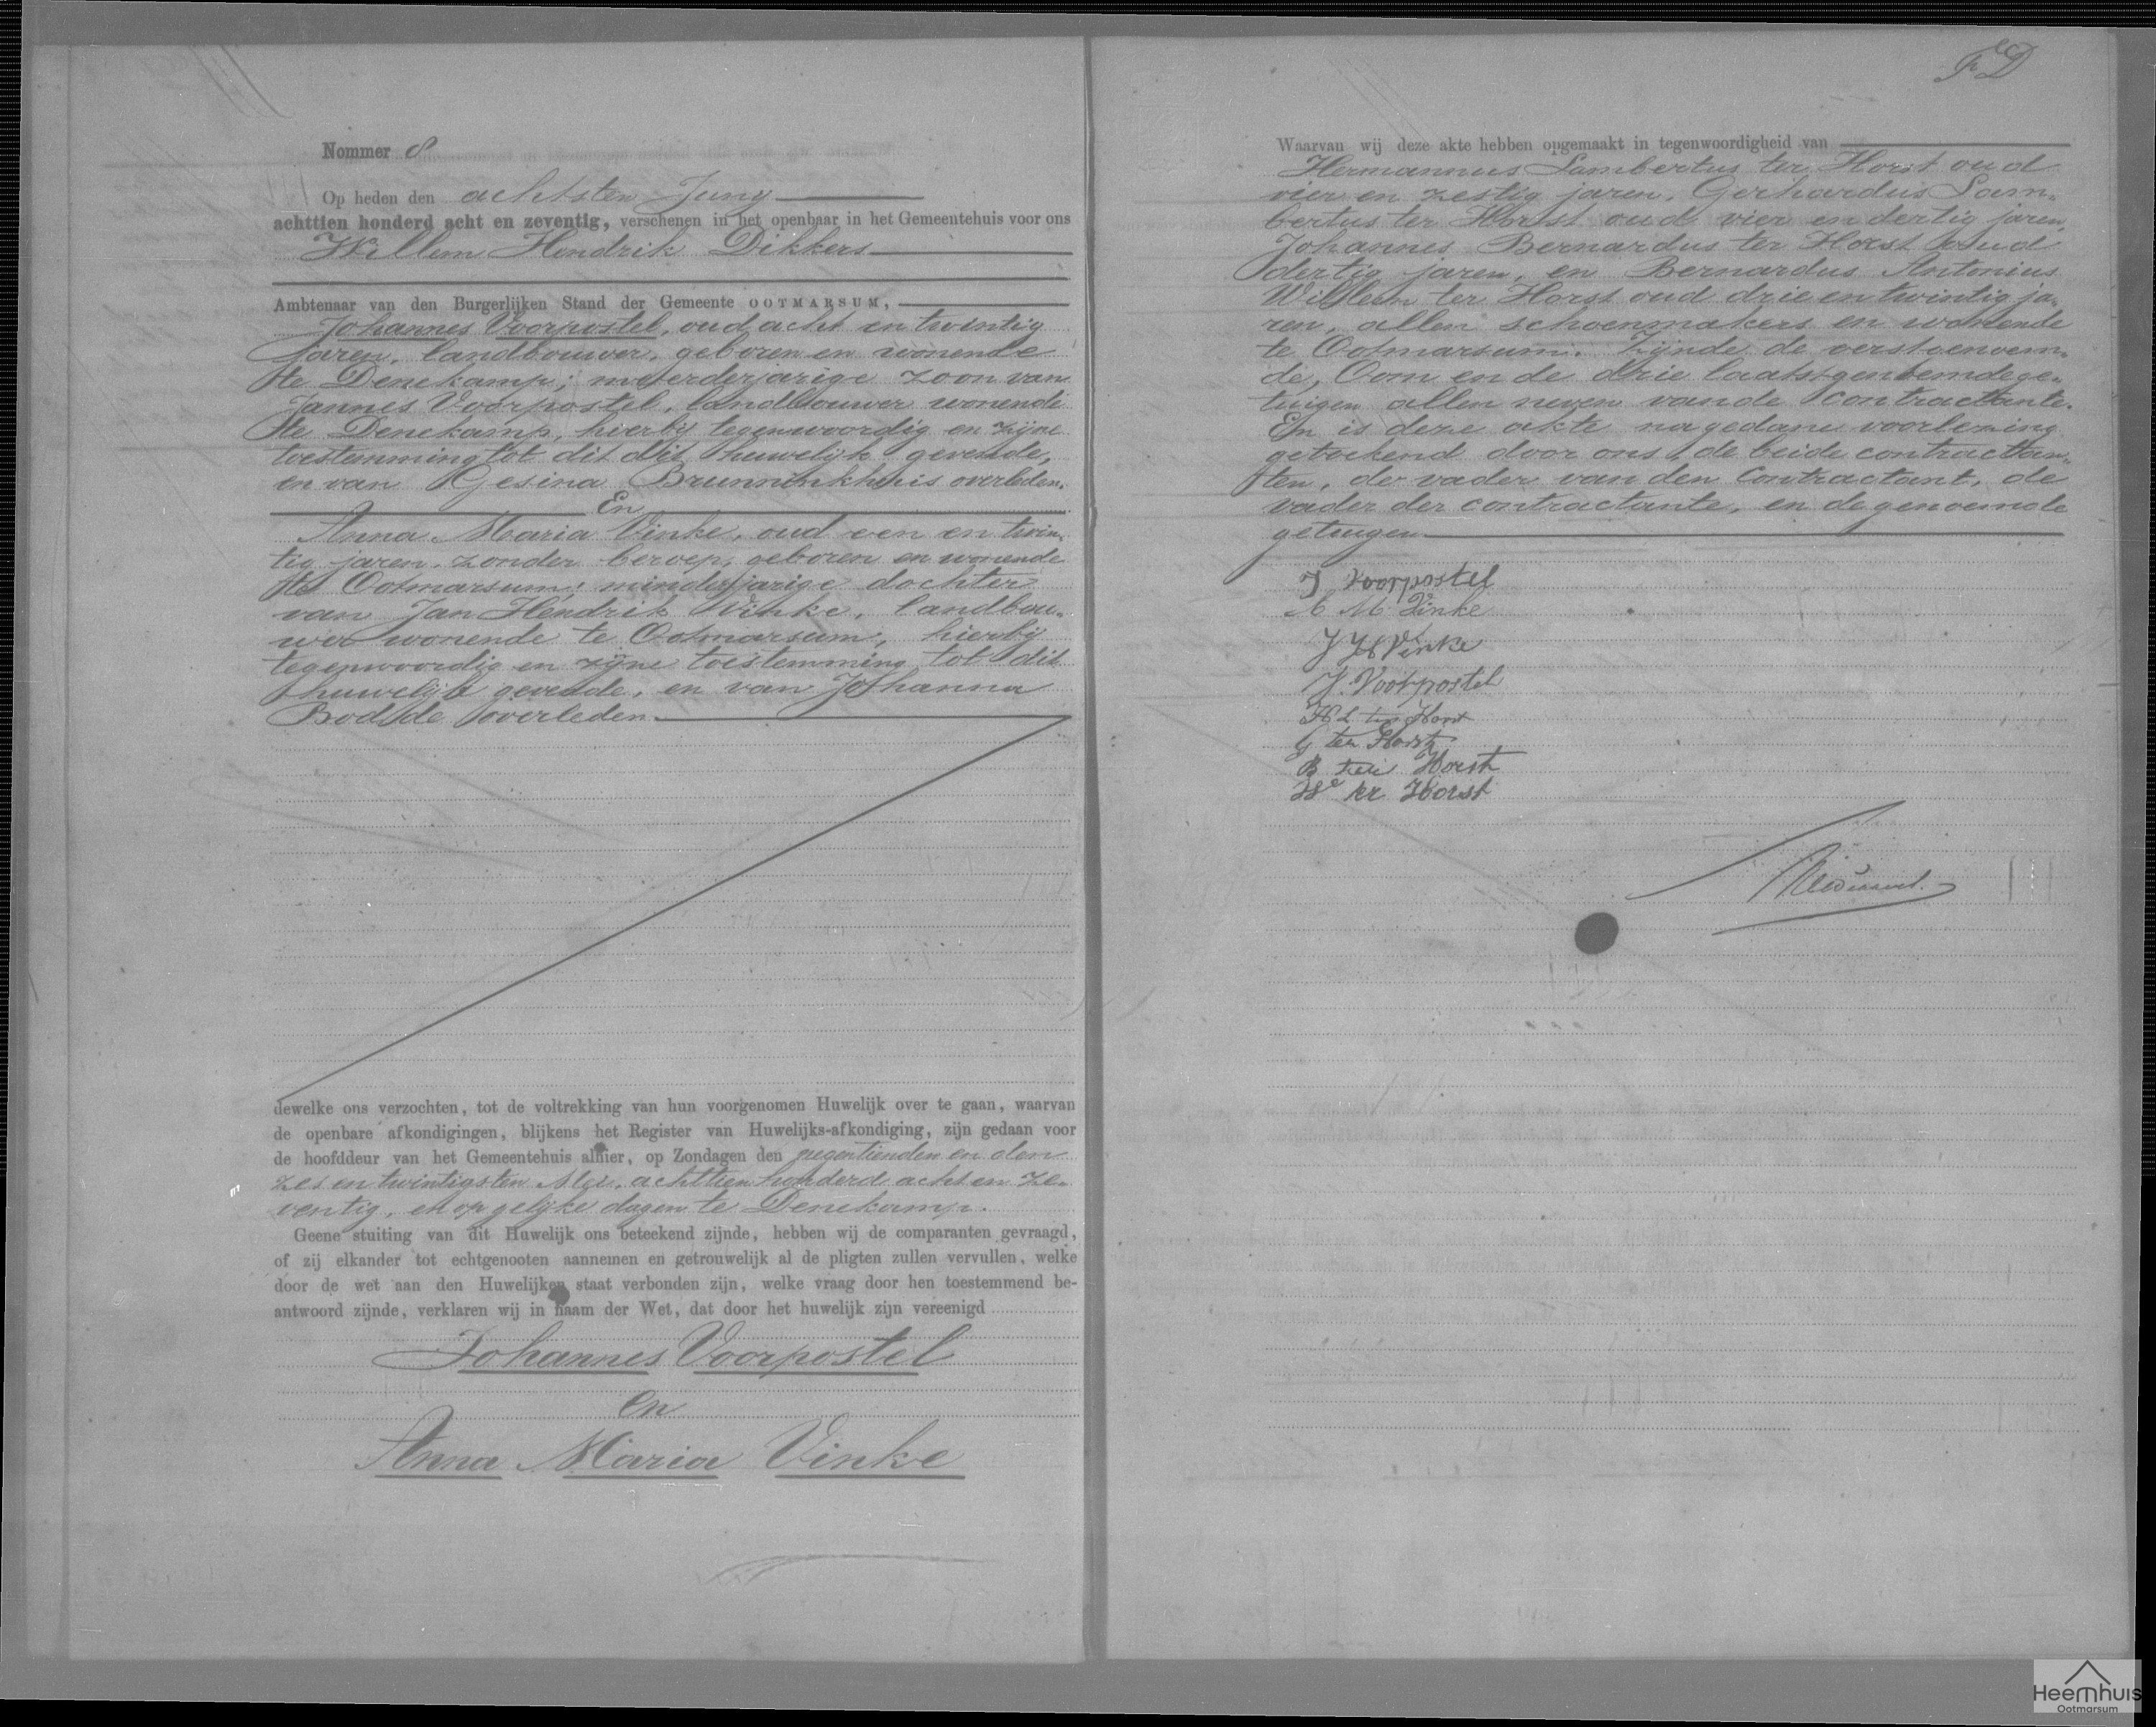 Nommer 8
Op heden den achtsten Juny
achttien honderd acht en zeventig, verschenen in het openbaar in het Gemeentehuis voor ons
Willem Hendrik Dikkers
Ambtenaar van den Burgerlijken Stand der Gemeente OOTMARSUM,
Johannes Voorpostel, oud acht en twintig
jaren, landbouwer, geboren en wonende
te Denekamp; meerderjarige zoon van
Jannes Voorpostel, landbouwer wonende
te Denekamp, hierbij tegenwoordig en zijne
toestemming tot dit dit huwelijk gevende,
en van Gesina Brunninkhuis overleden.
En
Anna Maria Vinke, oud een en twin-
tig jaren, zonder beroep, geboren en wonende
te Ootmarsum; minderjarige dochter
van Jan Hendrik Vinke, landbou-
wer wonende te Ootmarsum, hierbij
tegenwoordig en zijne toestemming tot dit
huwelijk gevende, en van Johanna
Bodde overleden.
dewelke ons verzochten, tot de voltrekking van hun voorgenomen Huwelijk over te gaan, waarvan
de openbare afkondigingen, blijkens het Register van Huwelijks-afkondiging, zijn gedaan voor
de hoofddeur van het Gemeentehuis alhier, op Zondagen den negentienden en den
zes en twintigsten Mei, achttien honderd acht en ze-
ventig, en op gelijke dagen te Denekamp.
Geene stuiting van dit Huwelijk ons beteekend zijnde, hebben wij de comparanten gevraagd,
of zij elkander tot echtgenooten aannemen en getrouwelijk al de pligten zullen vervullen, welke
door de wet aan den Huwelijken staat verbonden zijn, welke vraag door hen toestemmend be-
antwoord zijnde, verklaren wij in naam der Wet, dat door het huwelijk zijn vereenigd
Johannes Voorpostel
en
Anna Maria Vinke
Waarvan wij deze akte hebben opgemaakt in tegenwoordigheid van
Hermannus Lambertus ter Horst oud
vier en zestig jaren, Gerhardus Lam-
bertus ter Horst oud vier en dertig jaren,
Johannes Bernardus ter Horst oud
dertig jaren, en Bernardus Antonius
Willem ter Horst oud drie en twintig ja-
ren, allen schoenmakers en wonende
te Ootmarsum. Zijnde de eerstgenoem-
de, Oom en de drie laatstgenoemde ge-
tuigen allen neven van de contractante.
En is deze akte na gedane voorlezing
geteekend door ons, de beide contractan-
ten, de vader van den Contractant, de
vader der contractante, en de genoemde
getuigen
J Voorpostel
A M Vinke
J H Vinke
J. Voorpostel
H L ter Horst
G ter Horst
B ter Horst
W ter Horst
Heemhuis
Ootmarsum